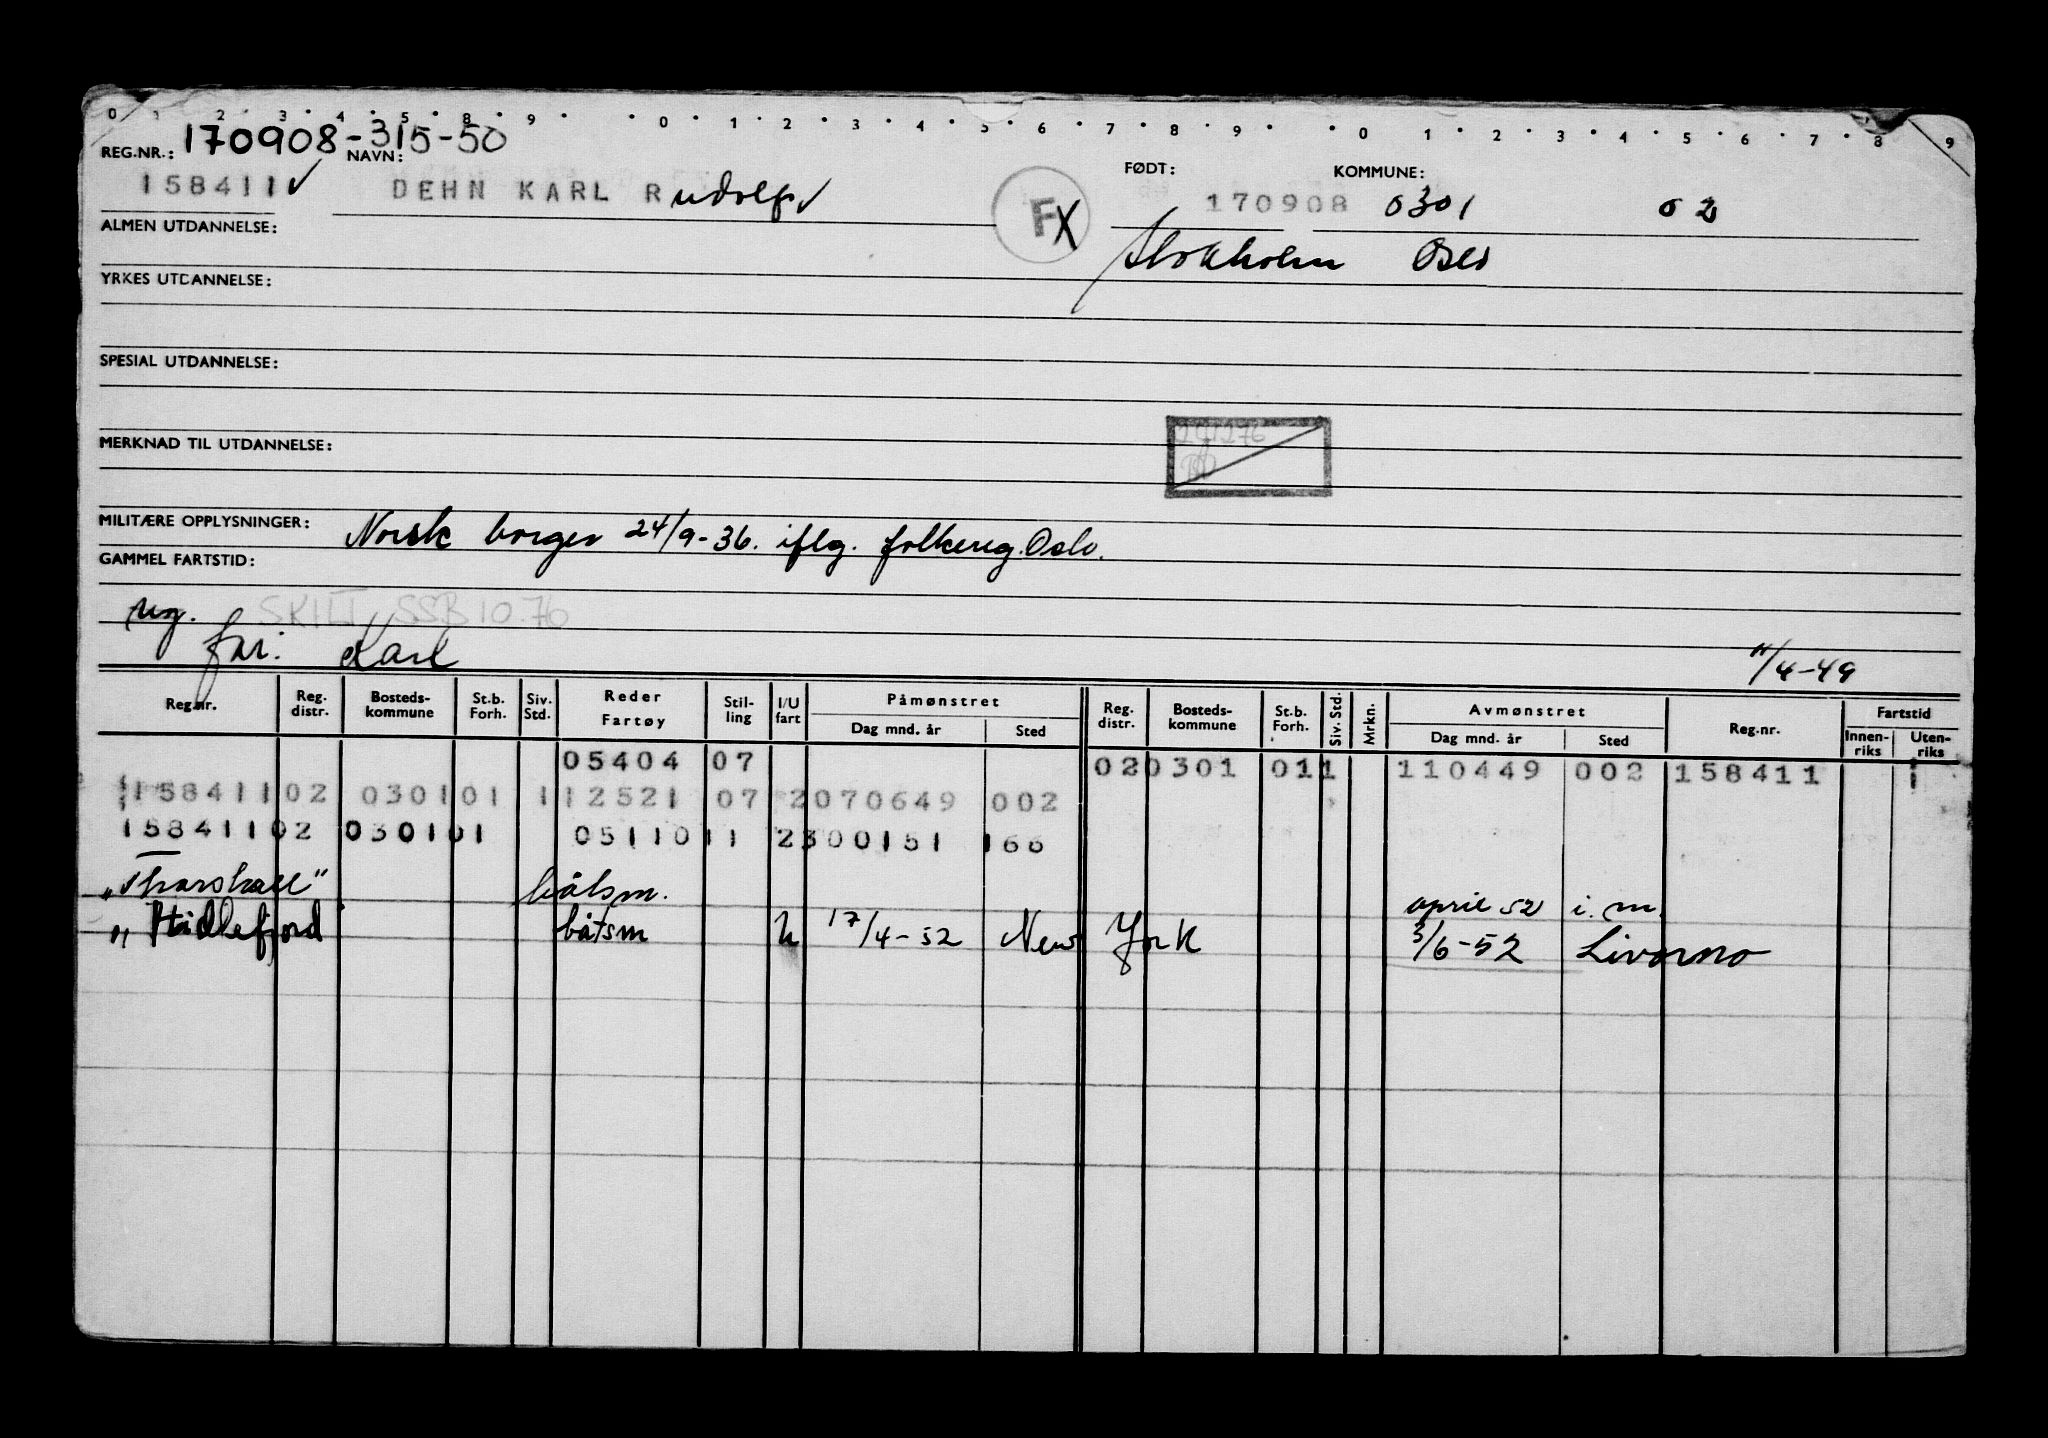 0 1 2 3 4 5 8 9 0 1 2 3 4 5 6 7 8 9 0 1 2 3 4 5 6 7 8 9
REG.NR.: 170908-315-50 NAVN: FØDT: KOMMUNE:
158411 DEHN KARL Rudolf FX 170908 0301 02
ALMEN UTDANNELSE: Stokholm Oslo
YRKES UTDANNELSE:
SPESIAL UTDANNELSE:
MERKNAD TIL UTDANNELSE:
MILITÆRE OPPLYSNINGER: Norsk borger 24/9-36. iflg. folkereg. Oslo.
GAMMEL FARTSTID:
reg. SKILT SSB 10.76
far: Karl 11/4-49
Reg.nr. Reg. distr. Bosteds-kommune St.b. Forh. Siv. Std. Reder Fartøy Stil-ling I/U fart Påmønstret Dag mnd. år Sted Reg. distr. Bosteds-kommune St.b. Forh. Siv. Std. Mrkn. Avmønstret Dag mnd. år Sted Reg.nr. Fartstid Innen-riks Uten-riks
05404 07 020301 011 110449 002 158411 1
158411 02 0301 01 1 12521 07 2 070649 002
158411 02 0301 01 05110 11 2 300151 166
"Thorshall" båtsm. april 52 i.m.
" Hidlefjord båtsm U 17/4-52 New York 3/6-52 Livorno